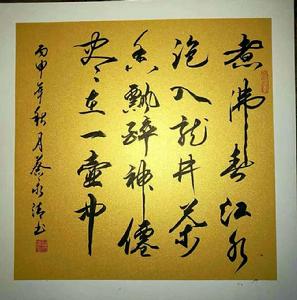 煮沸春江水
泡入龍井茶
香飄醉神僊
盡在一壺中
丙申年秋月蔡永清书